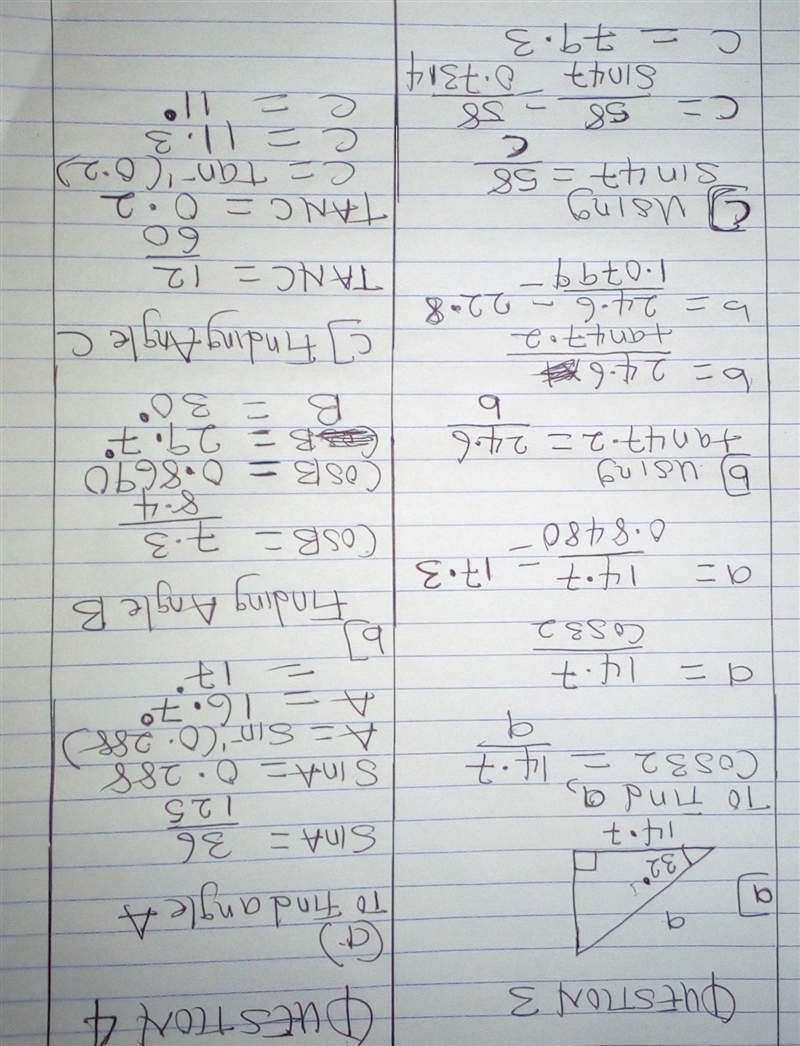 QUESTION 3
a]
a
32°
14.7
To Find a,
Cos32 = 14.7
a
a = 14.7
Cos32
a = 14.7 = 17.3
0.8480
b] Using
tan47.2 = 24.6
b
b = 24.6
tan47.2
b = 24.6 = 22.8
1.0799
C] Using
Sin47 = 58
C
C = 58 = 58
Sin47 0.7314
C = 79.3
QUESTION 4
(a)
To Find angle A
SinA = 36
125
SinA = 0.288
A = Sin⁻¹(0.288)
A = 16.7°
= 17°
b]
Finding Angle B
CosB = 7.3
8.4
CosB = 0.8690
B = 29.7°
B = 30°
C] Finding Angle C
TANC = 12
60
TANC = 0.2
C = tan⁻¹(0.2)
C = 11.3
C = 11°